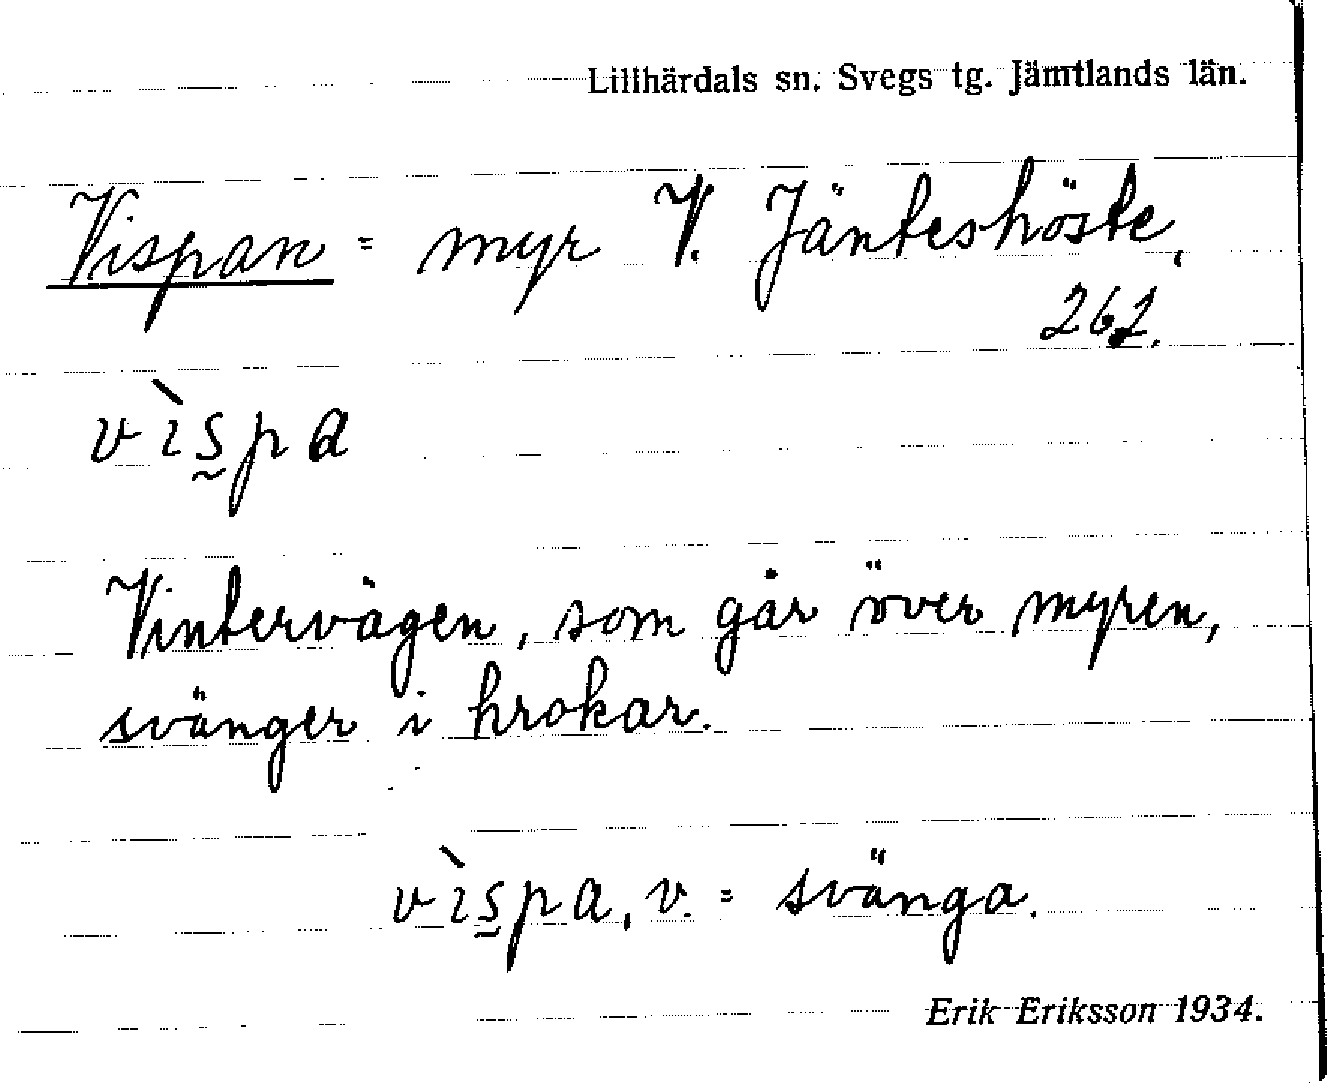 Lillhärdals sn. Svegs tg. Jämtlands län.
Vispan = myr V. Jänteshöste,
262.
vìs̰pa
Vintervägen, som går över myren,
svänger i krokar.
vìs̰pa, v. = svänga.
Erik Eriksson 1934.